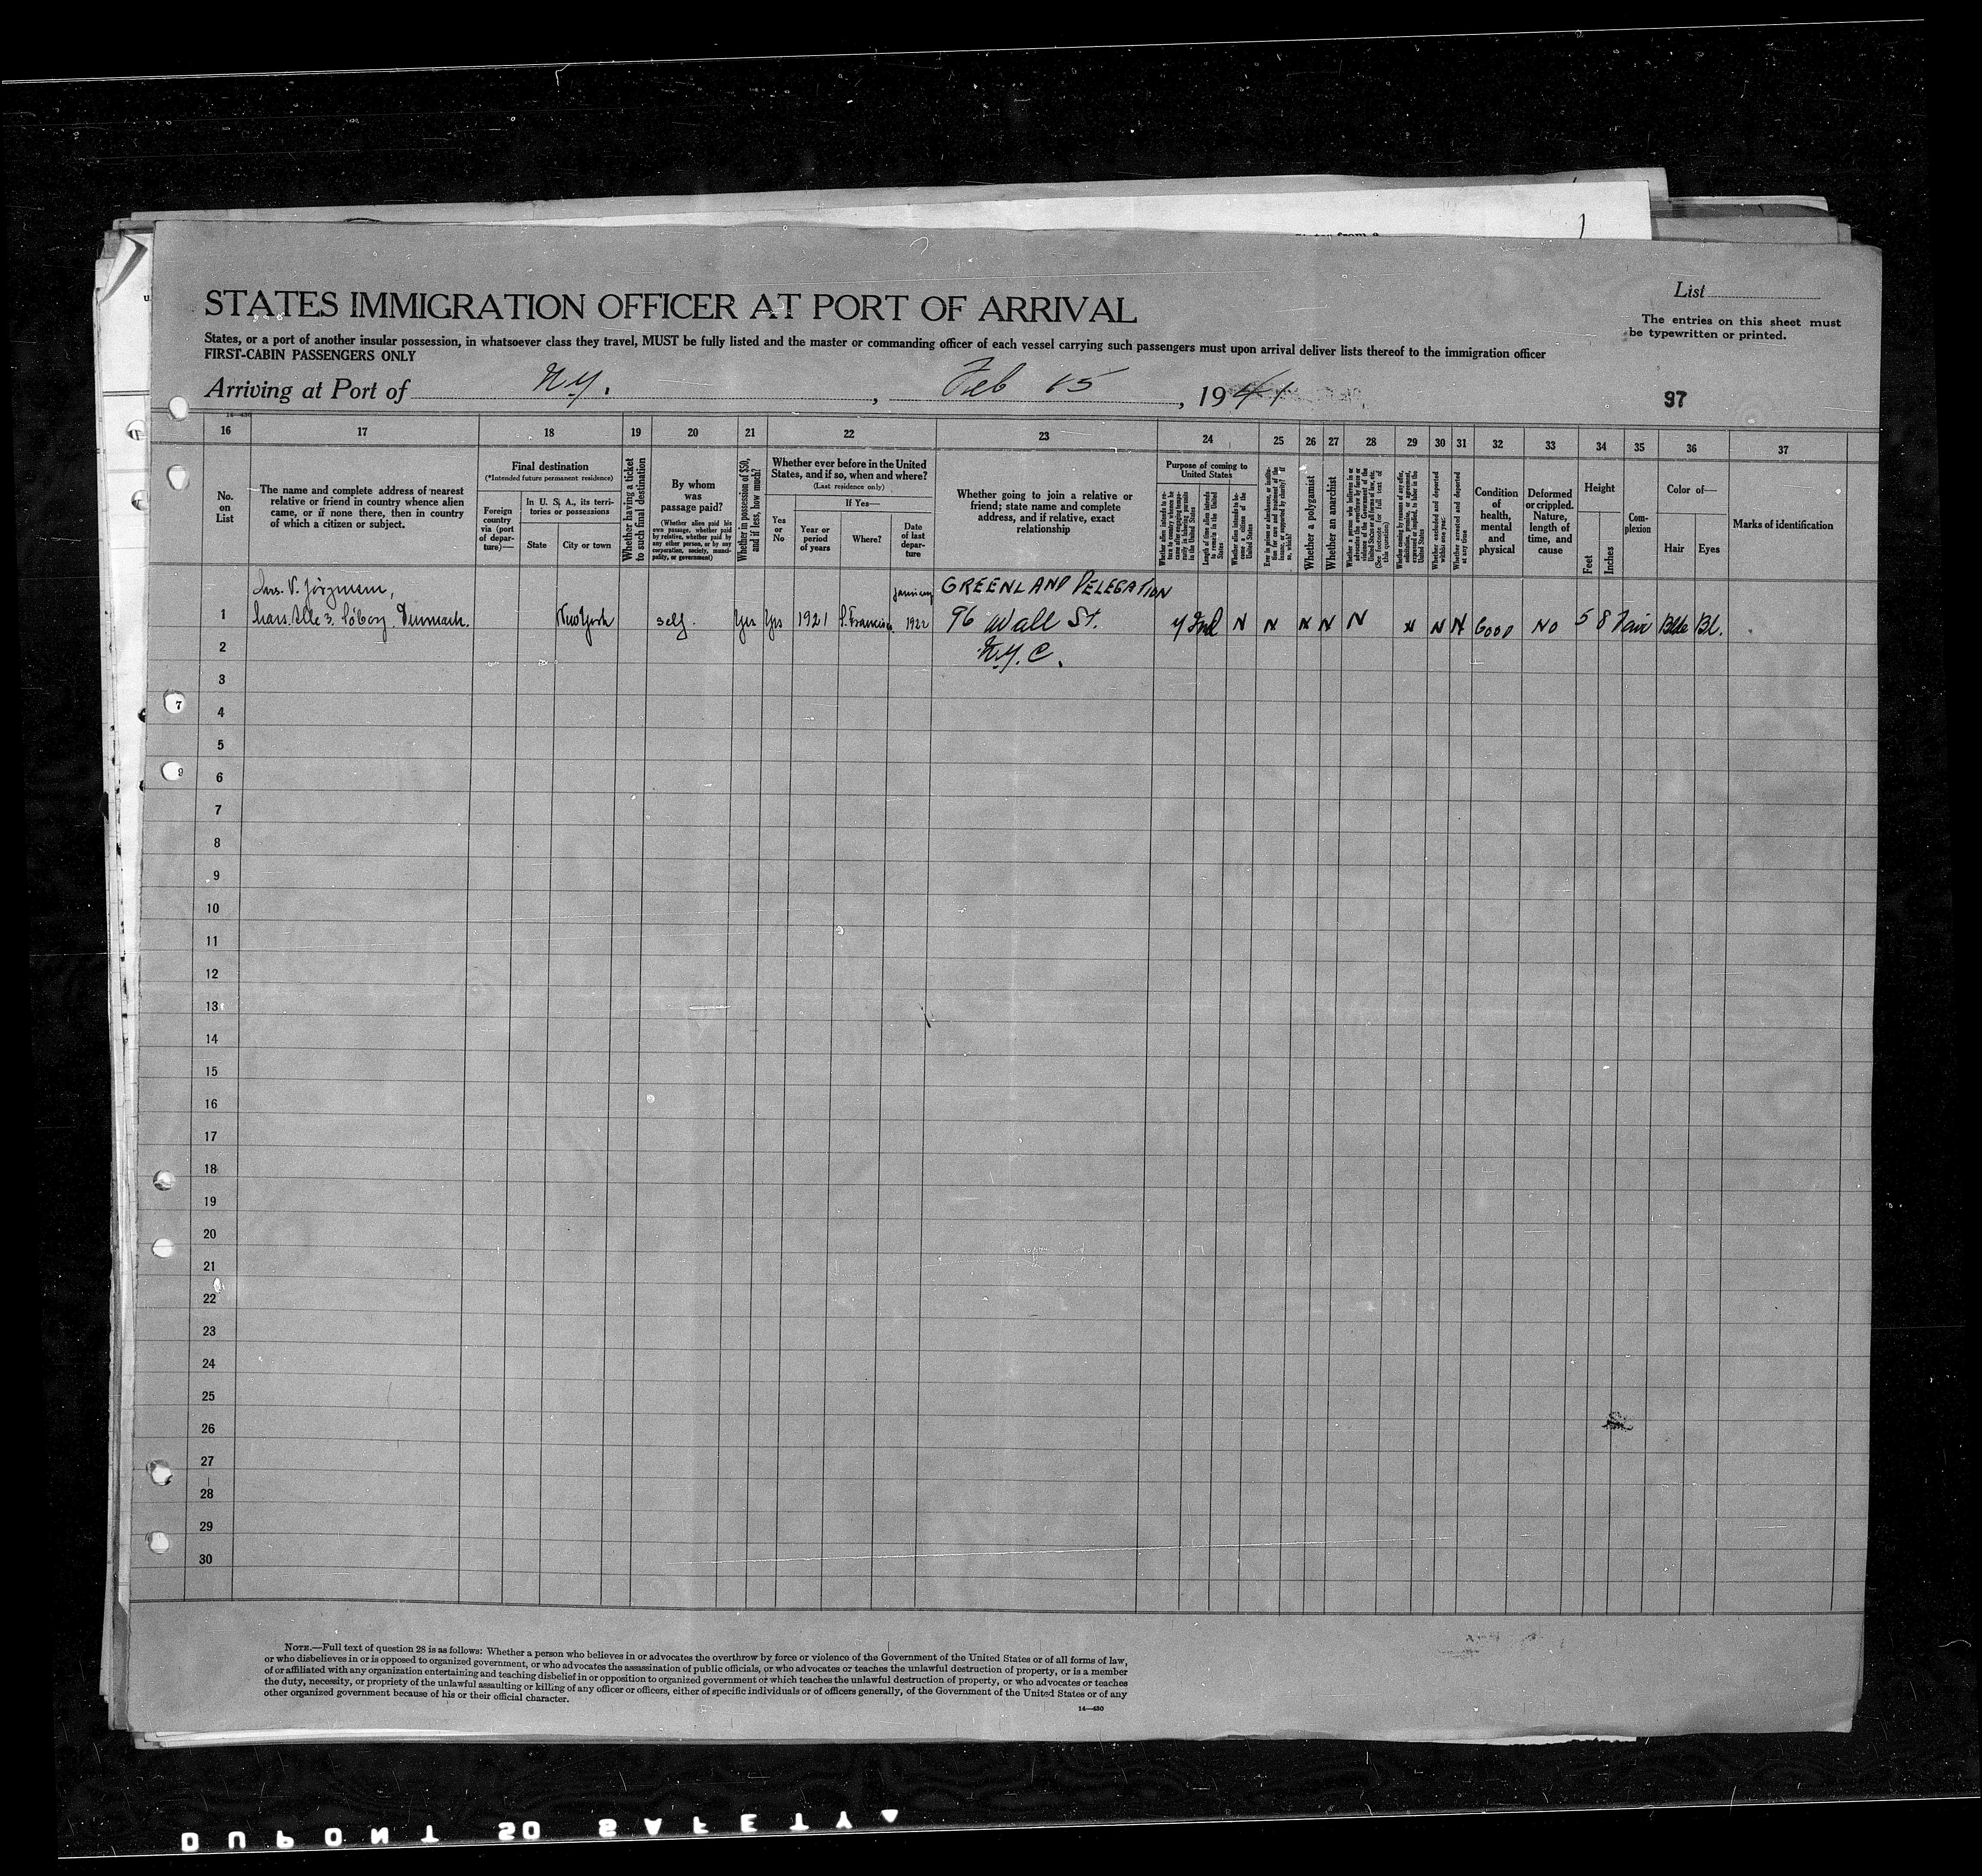 STATES IMMIGRATION OFFICER AT PORT OF ARRIVAL
List
The entries on this sheet must
be typewritten or printed.
States, or a port of another insular possession, in whatsoever class they travel, MUST be fully listed and the master or commanding officer of each vessel carrying such passengers must upon arrival deliver lists thereof to the immigration officer
FIRST-CABIN PASSENGERS ONLY
Arriving at Port of N.Y., Feb 15, 1941
97
14-430
16 17 18 19 20 21 22 23 24 25 26 27 28 29 30 31 32 33 34 35 36 37
No. on List
The name and complete address of nearest
relative or friend in country whence alien
came, or if none there, then in country
of which a citizen or subject.
Final destination
(*Intended future permanent residence)
Foreign country via (port of departure)—
In U. S. A., its territories or possessions
State
City or town
Whether having a ticket to such final destination
By whom was passage paid?
(Whether alien paid his own passage, whether paid by relative, whether paid by any other person, or by any corporation, society, municipality, or government)
Whether in possession of $50, and if less, how much?
Whether ever before in the United States, and if so, when and where?
(Last residence only)
Yes or No
If Yes—
Year or period of years
Where?
Date of last departure
Whether going to join a relative or
friend; state name and complete
address, and if relative, exact
relationship
Purpose of coming to United States
Whether alien intends to return to country whence he came after engaging temporarily in laboring pursuits in the United States
Length of time alien intends to remain in the United States
Whether alien intends to become a citizen of the United States
Ever in prison or almshouse, or institution for care and treatment of the insane, or supported by charity? If so, which?
Whether a polygamist
Whether an anarchist
(See footnote for full text of this question)
Whether coming by reason of any offer, solicitation, promise, or agreement, expressed or implied, to labor in the United States
Whether excluded and deported within one year
Whether arrested and deported at any time
Condition of health, mental and physical
Deformed or crippled. Nature, length of time, and cause
Height
Feet
Inches
Complexion
Color of—
Hair
Eyes
Marks of identification
V. Jörgensen,
GREENLAND DELEGATION
1 3. Söborg. Denmark. New York self. Yes Yes 1921 S. Francisco January 1922 96 Wall St. Y Ind N N N N N N N N GOOD NO 5 8 Fair Blde Bl.
2 N.Y.C.
3
4
5
6
7
8
9
10
11
12
13
14
15
16
17
18
19
20
21
22
23
24
25
26
27
28
29
30
NOTE.—Full text of question 28 is as follows: Whether a person who believes in or advocates the overthrow by force or violence of the Government of the United States or of all forms of law,
or who disbelieves in or is opposed to organized government, or who advocates the assassination of public officials, or who advocates or teaches the unlawful destruction of property, or is a member
of or affiliated with any organization entertaining and teaching disbelief in or opposition to organized government or which teaches the unlawful destruction of property, or who advocates or teaches
the duty, necessity, or propriety of the unlawful assaulting or killing of any officer or officers, either of specific individuals or of officers generally, of the Government of the United States or of any
other organized government because of his or their official character.
14-430
DUPONT 50 SAFETY